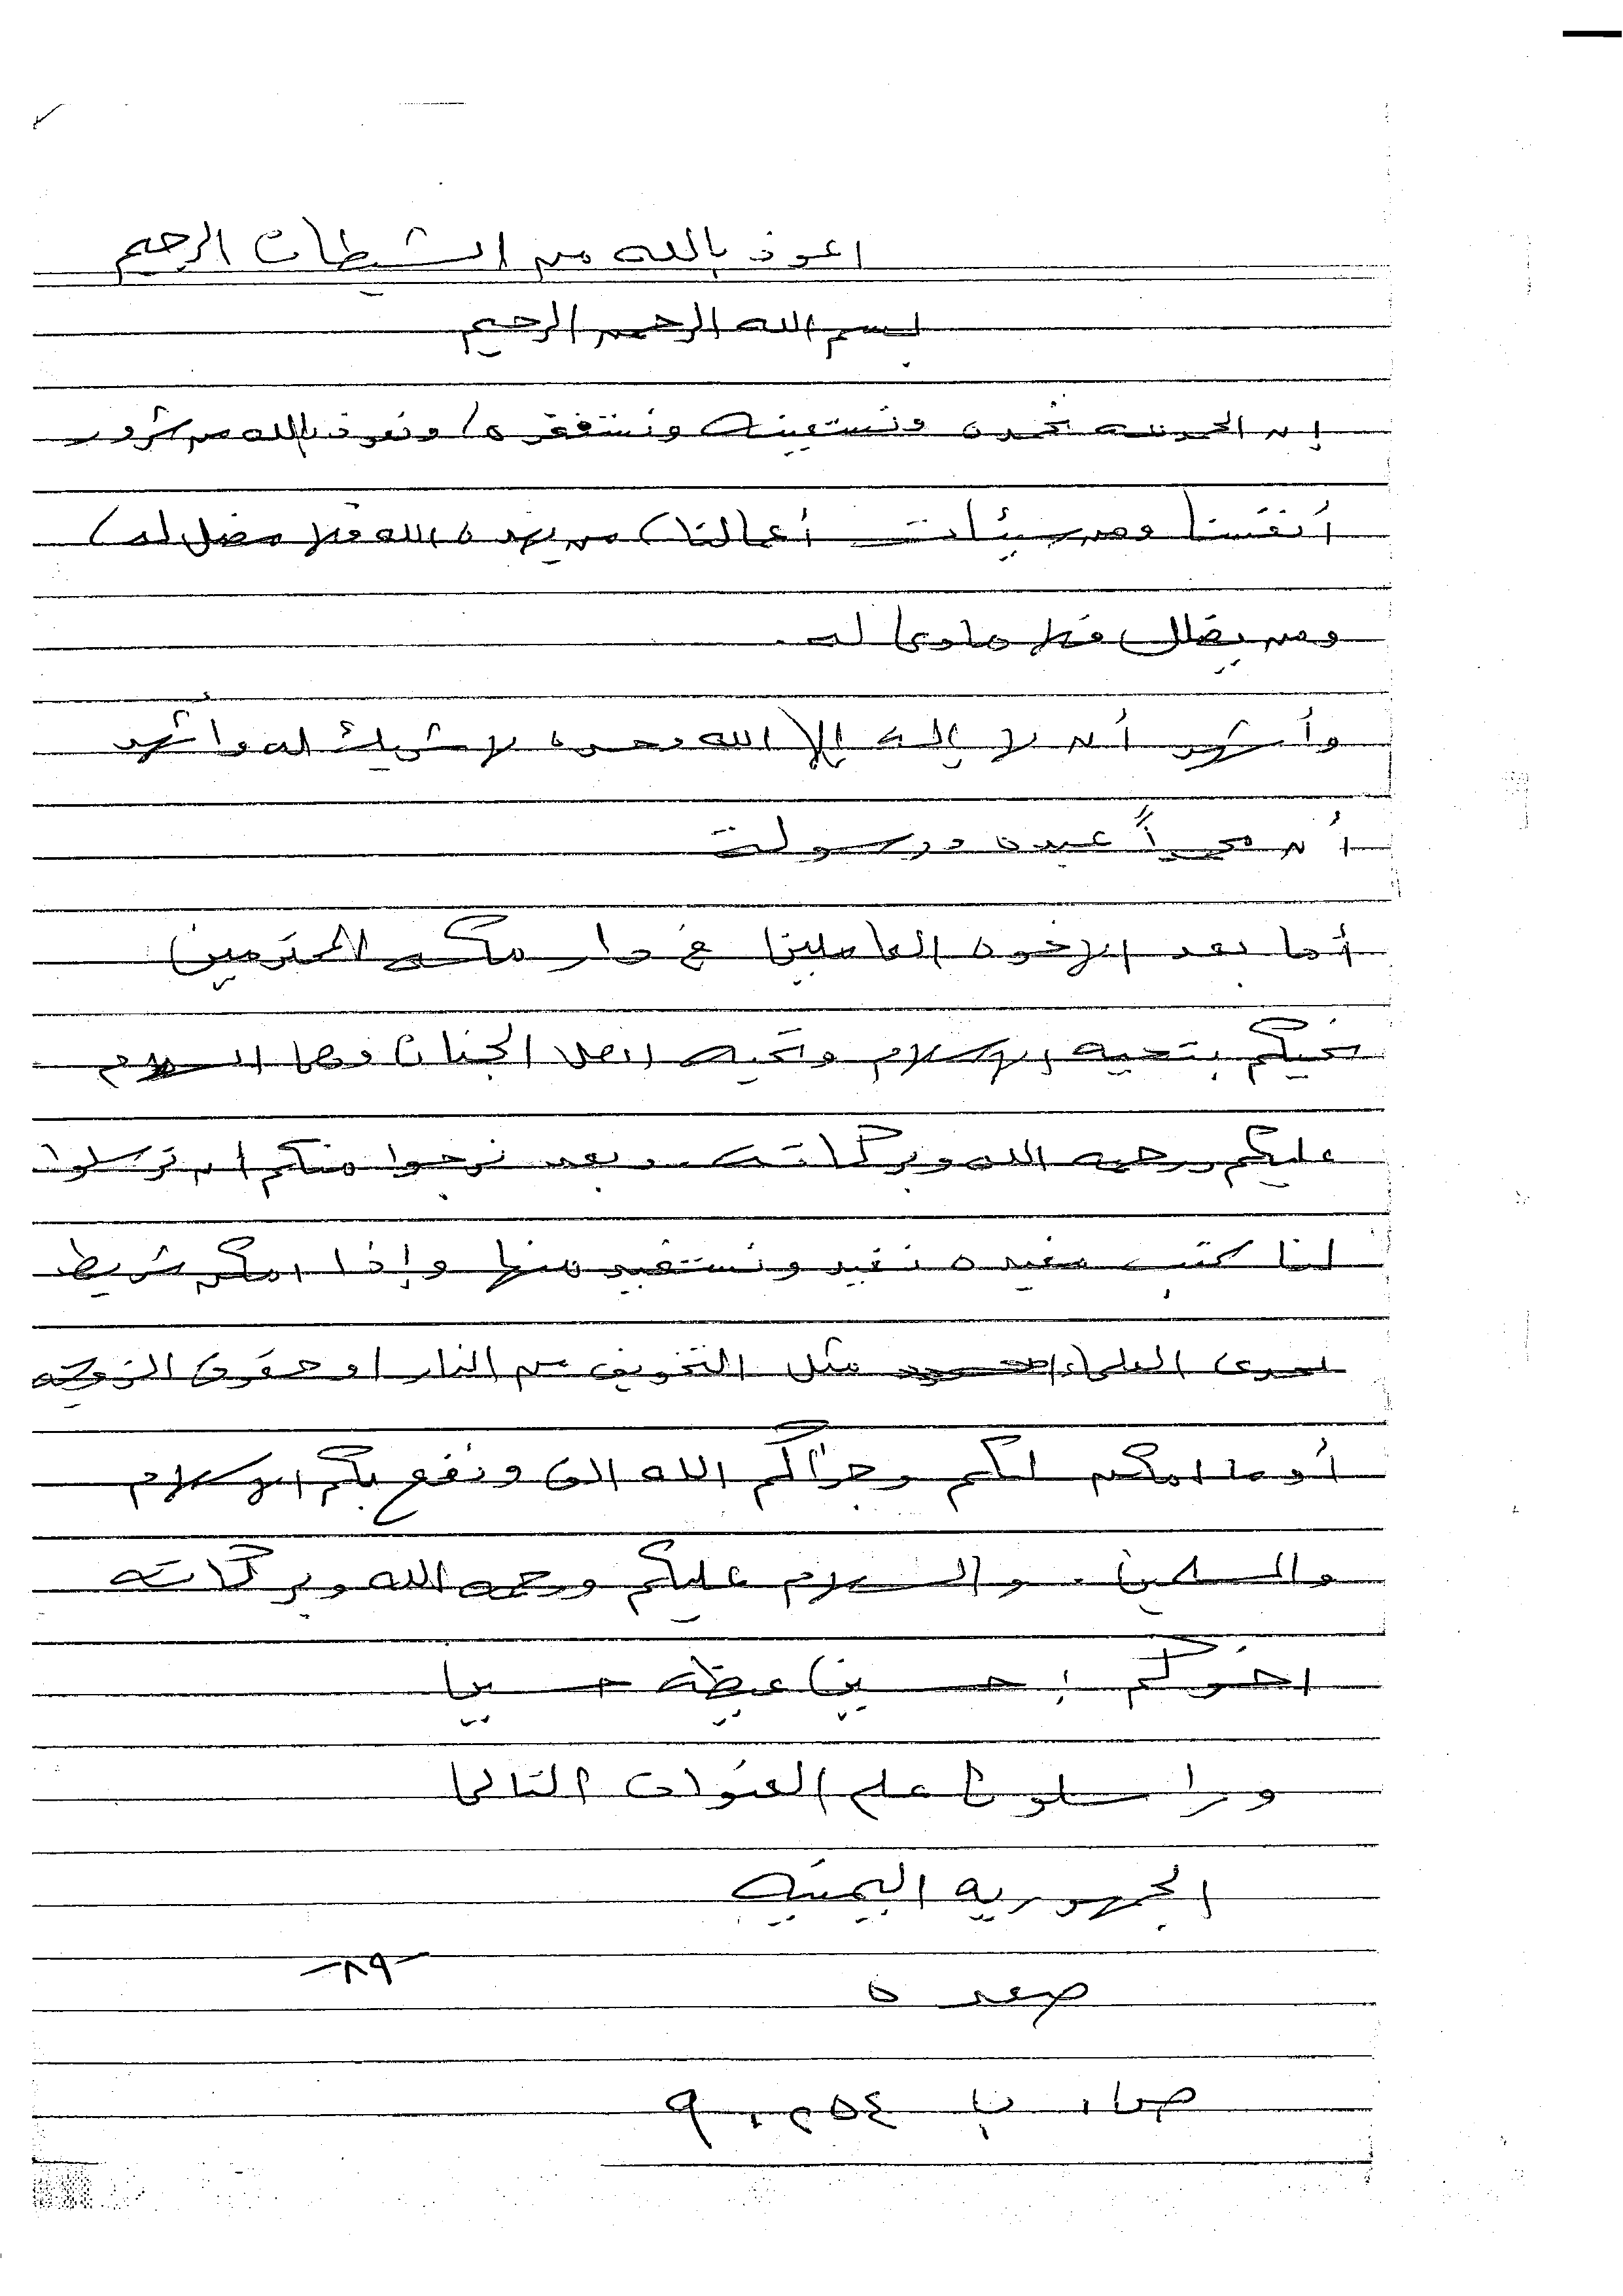 اعوذ بالله من الشيطان الرجيم
بسم الله الرحمن الرحيم
إن الحمد لله نحمده ونستعينه ونستغفره ونعوذ بالله من شرور
أنفسنا ومن سيئات أعمالنا من يهده الله فلا مضل له
ومن يضلل فلا هادي له.
وأشهد أن لا إله إلا الله وحده لا شريك له وأشهد
أن محمداً عبده ورسولة
أما بعد الإخوه العاملين في دار مكه المحترمين
نحيكم بتحيه الإسلام وتحيه اهل الجنان وهي السلام
عليكم ورحمه الله وبركاته. وبعد نرجوا منكم ان ترسلوا
لنا كتب مفيده نفيد ونستفيد منها وإذا امكن شريط
لحدى العلماء مثل التخويف من النار او حقوق الزوجه
أو ما امكن لكم وجزاكم الله الف ونفع بكم الإسلام
والمسلمين. والسلام عليكم ورحمه الله وبركاته
اخوكم : حسين عيظه حسين
وراسلونا على العنوان التالي
الجمهوريه اليمنيه
صعده
-٨٩-
ص. ب ٩٠٢٥٤